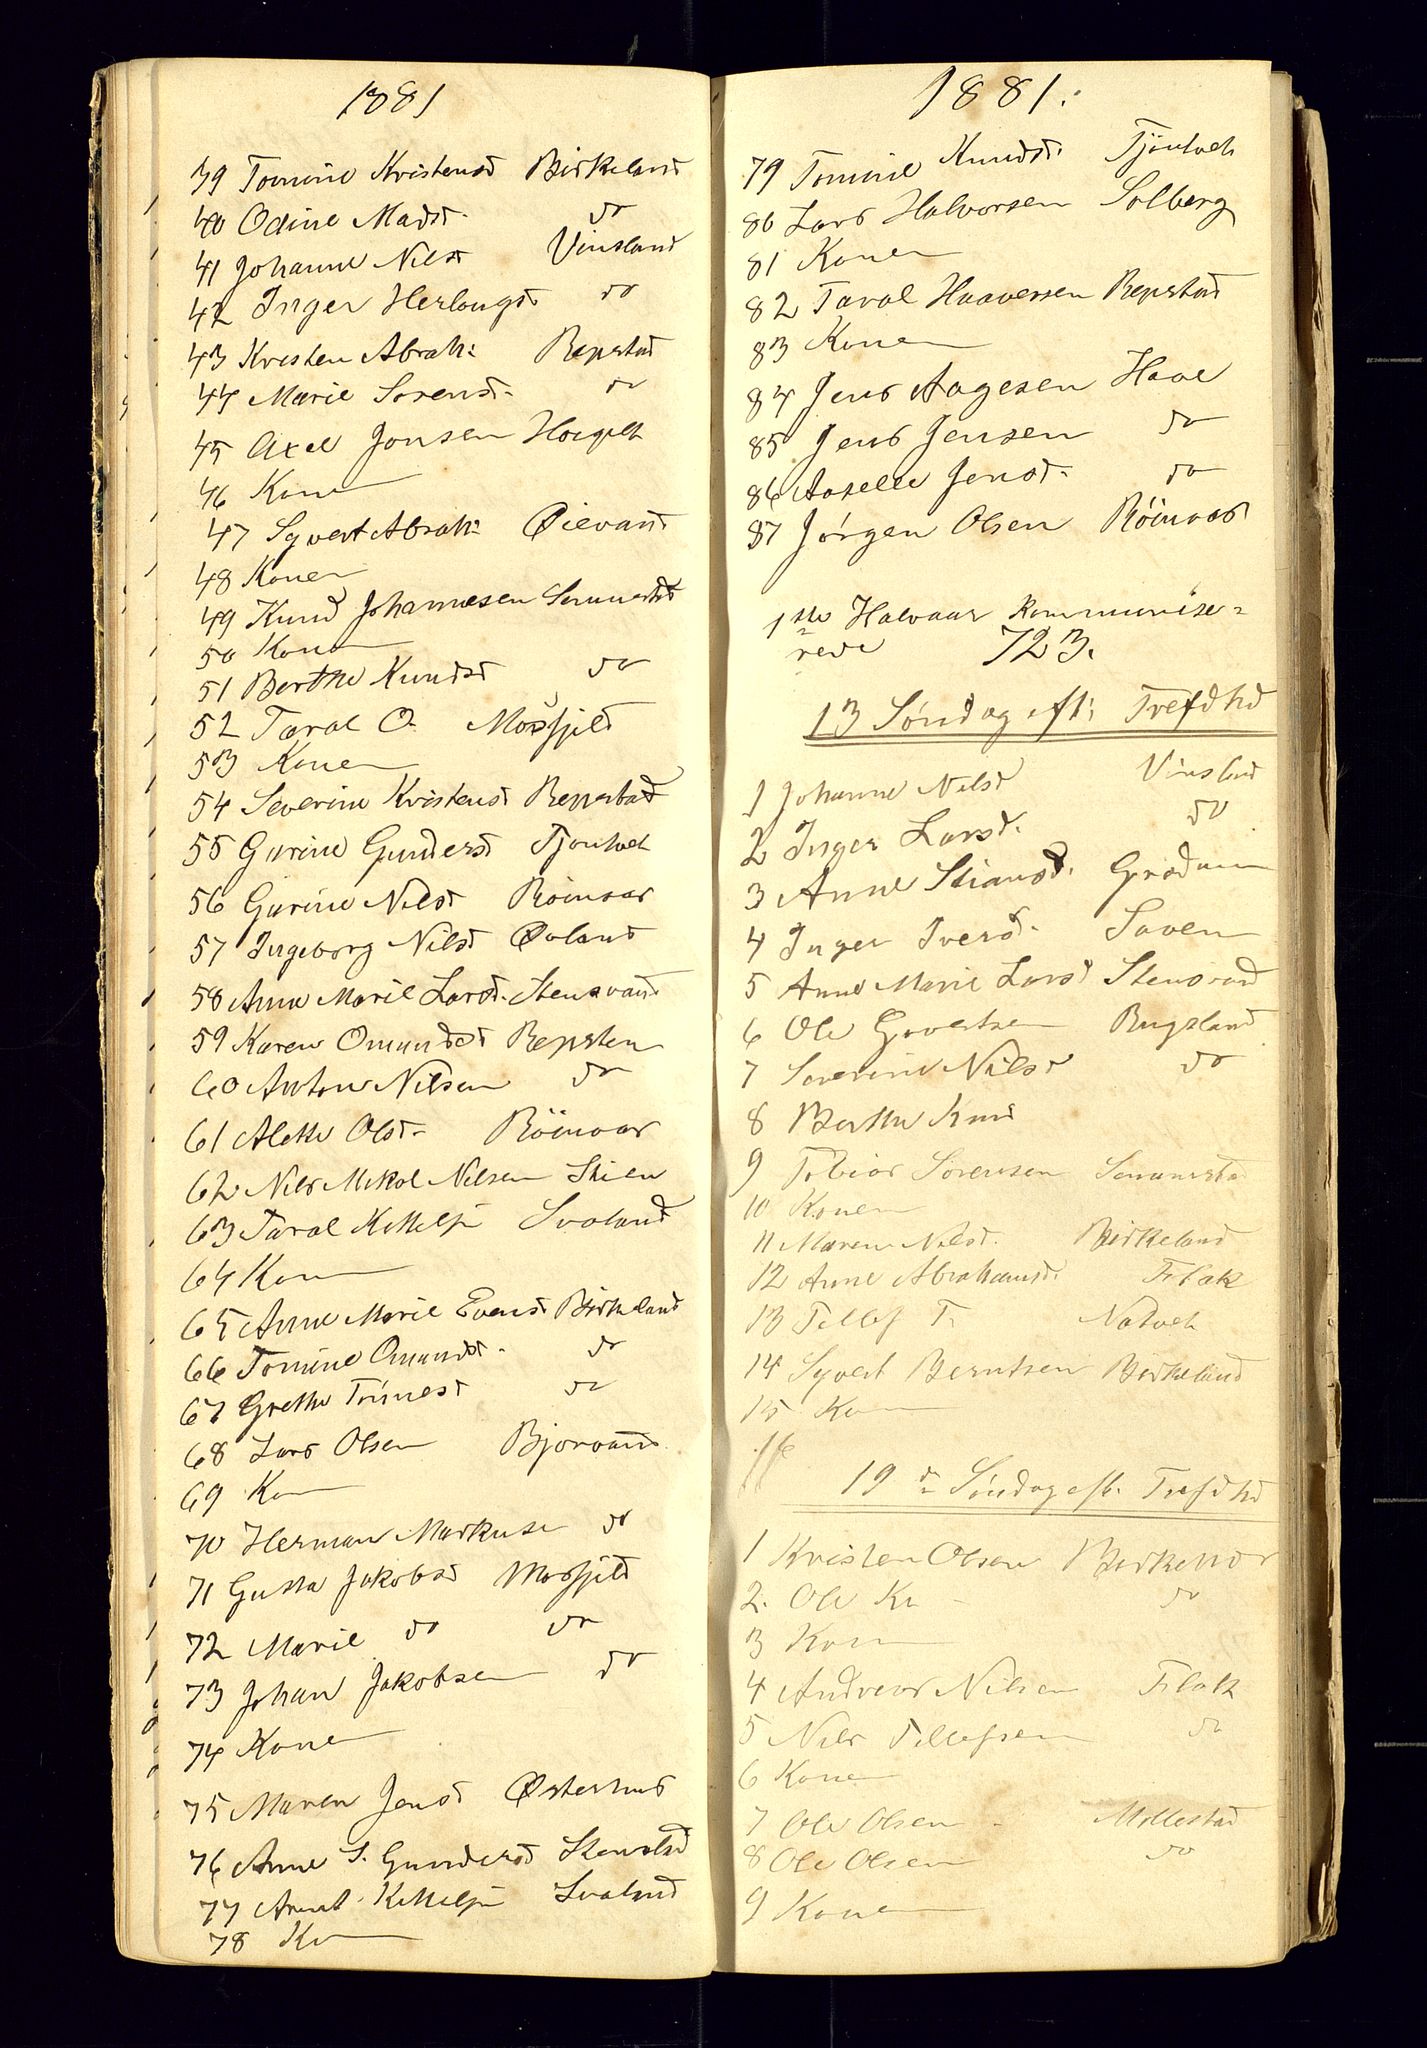 1881
39 Tomine Kristensd Birkeland
40 Odine Madsd. do
41 Johanne Nilsd Vinsland
42 Inger Herlougsd do
43 Kristen Abrah: Repstad
44 Marie Sorensd. do
45 Axel Jonsen
46 Kone
47 Syvert Abrah: Øievand
48 Konen
49 Knud Johannesen
50 Kone
51 Berthe Knudsd do
52 Taral O. Mosfjeld
53 Konen
54 Severine Kristensd Repstad
55 Gurine Gundersd Tjontvet
56 Gurine Nilsd Röinaas
57 Ingeborg Nilsd Øvland
58 Anne Marie Larsd. Stensvand
59 Karen Omundsd Repsten
60 Anton Nilsen do
61 Alette Olsd. Röinaas
62 Nils Mikal Nilsen Skien
63 Taral Kittelsn Svaland
64 Kon
65 Anne Marie Evensd Birkeland
66 Tomine Omundsd. do
67 Grethe Tönnesd do
68 Lars Olsen Bjorvand
69 Kon
70 Herman Markuse do
71 Gusta Jakobsd Mosfjeld
72 Marie do do
73 Johan Jakobsen do
74 Konen
75 Maren Jensd Østerhus
76 Anne S. Gundersd
77 Kittelsn Svaland
78 Kn
1881.
79 Tomine Knudsd. Tjöntvet
80 Lars Halvorsen Solberg
81 Konen
82 Taral Haaversen Repstad
83 Konen
84 Jens Aagesen Have
85 Jens Jensen do
86 Aaselle Jensd. do
87 Jörgen Olsen Röinaas
1ste Halvaar kommunise=
rede 723.
13 Søndag eft: Trefdhd
1 Johanne Nilsd Vinsland
2 Inger Larsd. do
3 Anne Stiansd. Grødum
4 Inger Iversd. Saven
5 Anne Marie Larsd Stensvand
6 Ole Govertsen Rugsland
7 Severine Nilsd do
8 Berthe Knu
9 Tobias Sörensen
10 Konen
11 Maren Nilsd. Birkeland
12 Anne Abrahamsd. Flak
13 Tellef T. Natvet
14 Syvert Berntsen Birkeland
15 Kon
16
19 d Søndag eft. Trefdhd
1 Kristen Olsen
2. Ole Kr do
3 Kon
4 Andreas Nilsen Flak
5 Nils Tellefsen do
6 Konen
7 Ole Olsen Mollestad
8 Ole Olsen do
9 Konen